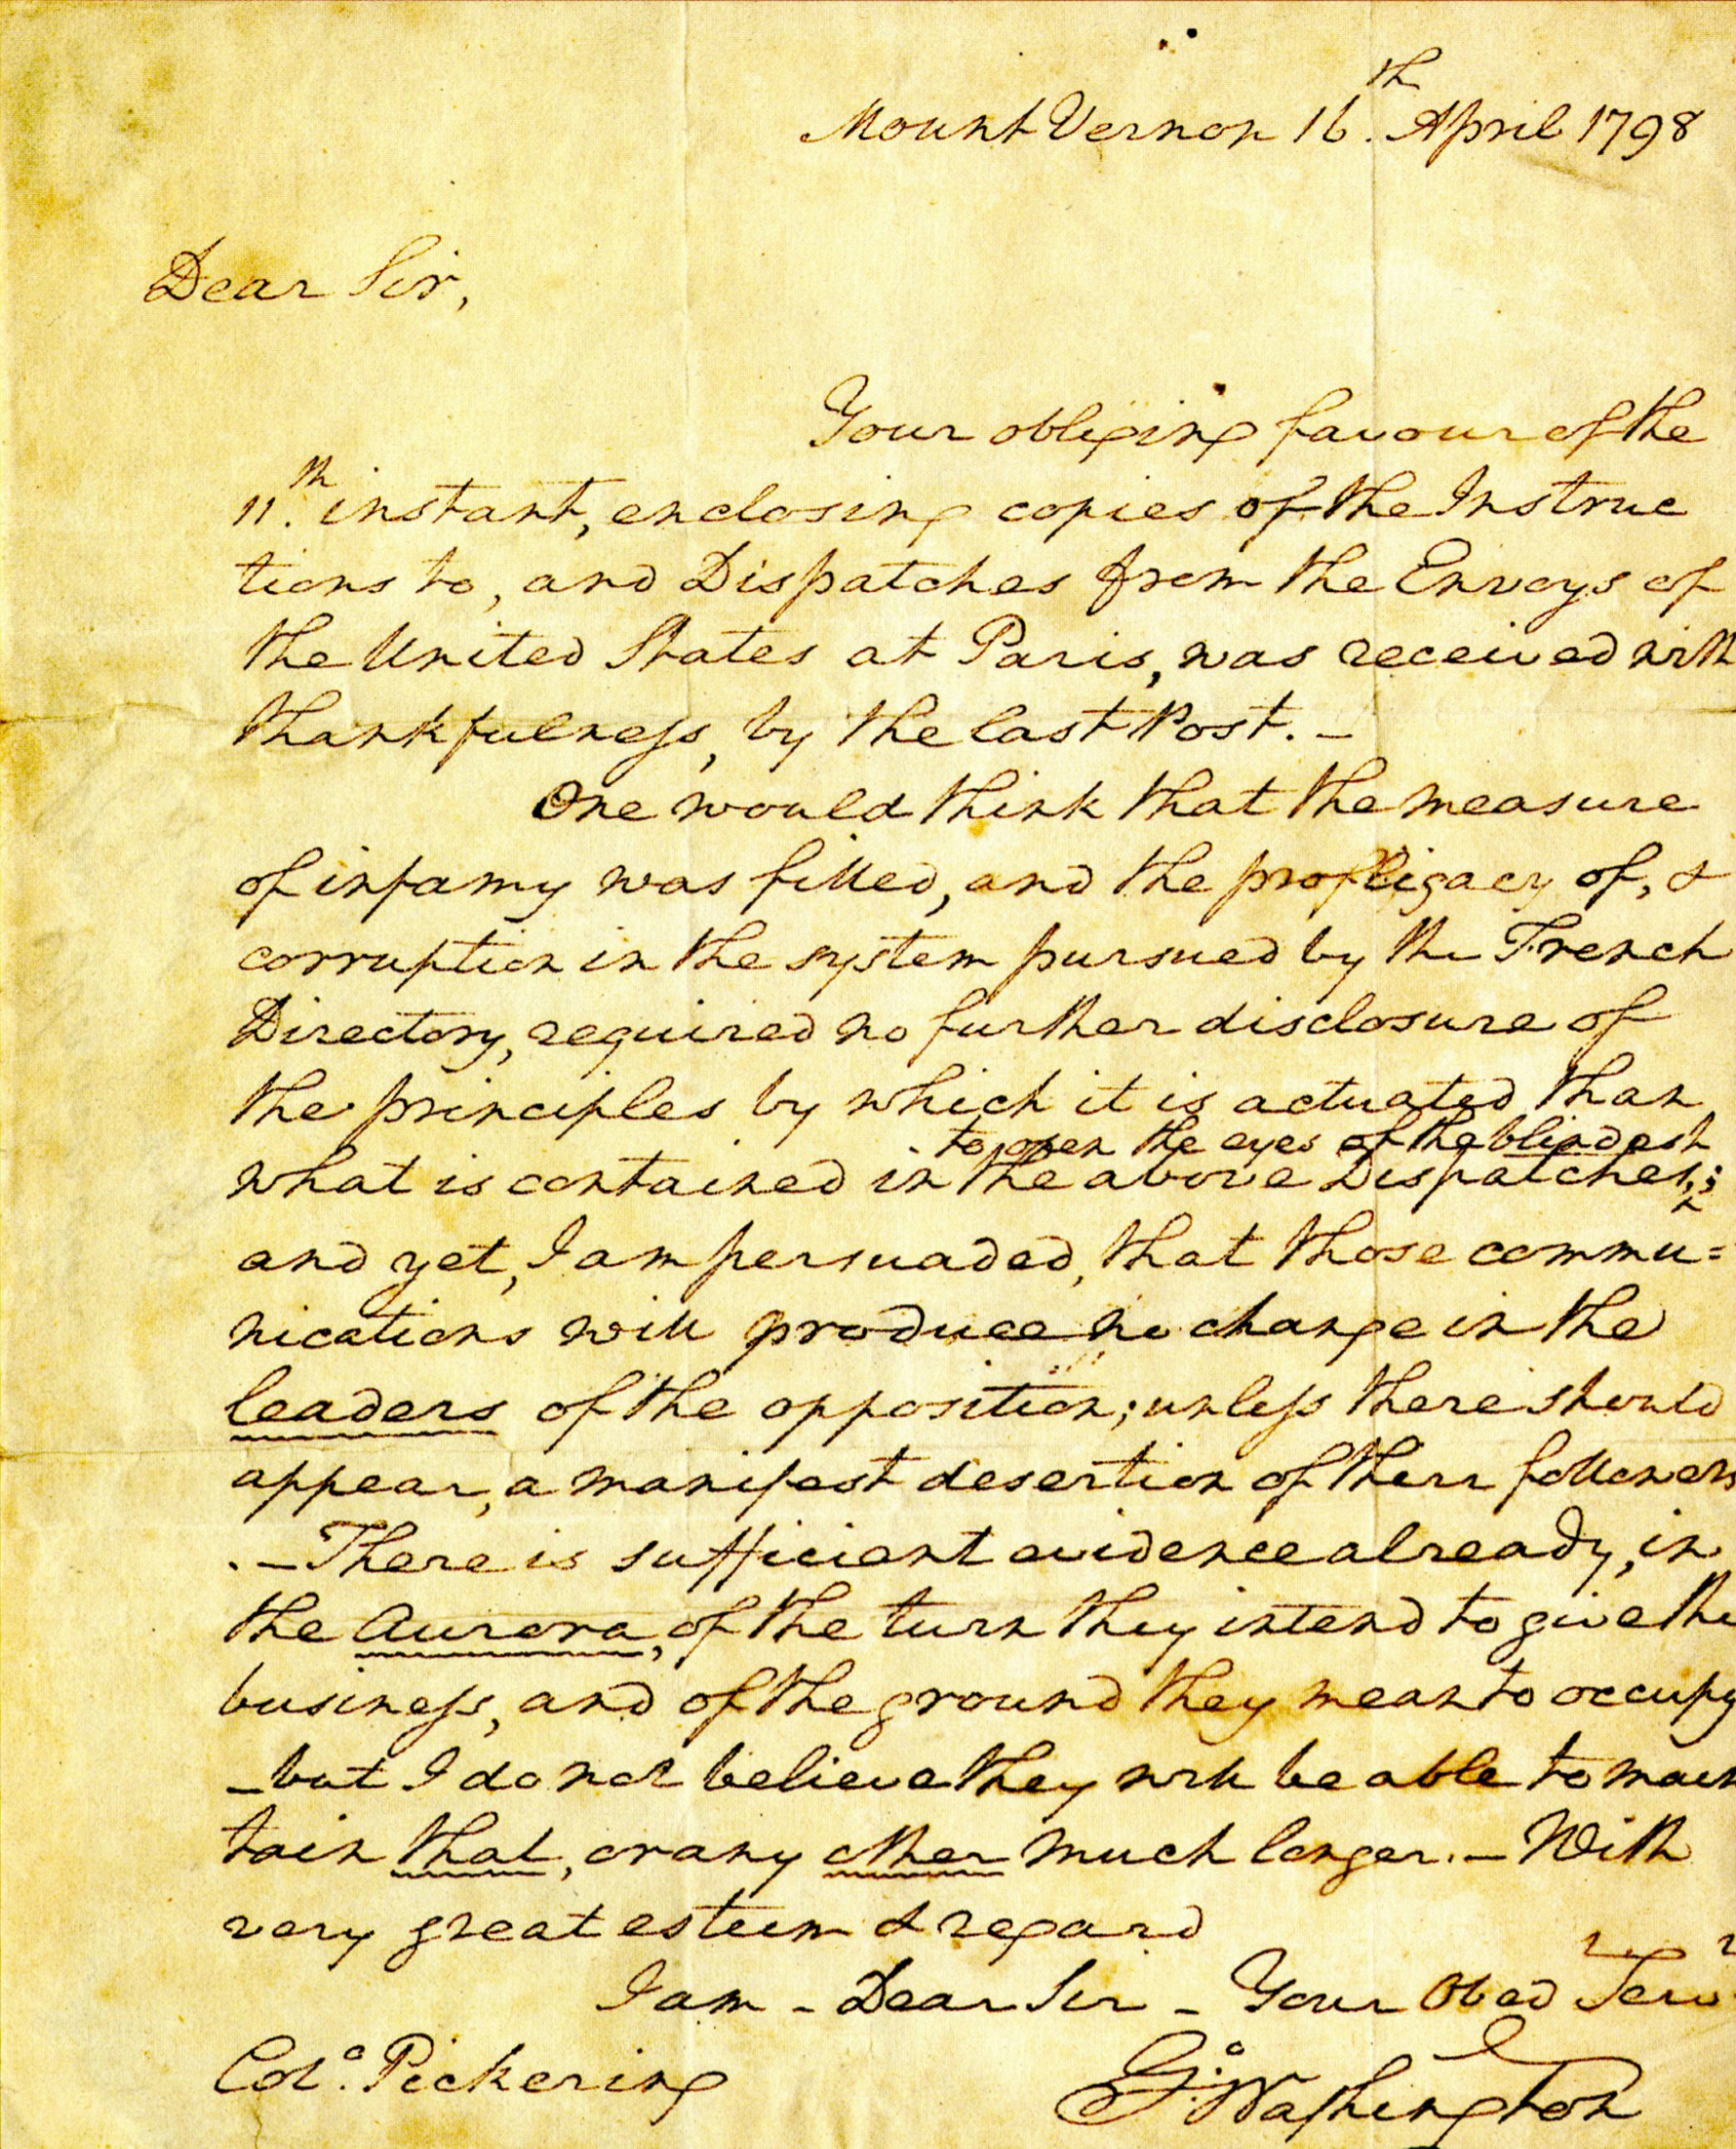 Mount Vernon 16th. April 1798
Dear Sir,
Your obliging favour of the
11th. instant, enclosing copies of the Instruc
tions to, and Dispatches from the Envoys of
the United States at Paris, was received with
thankfulness, by the last Post. –
One would think that the measure
of infamy was filled, and the profligacy of, &
corruption in the system pursued by the French
Directory, required no further disclosure of
the principles by which it is actuated than
to open the eyes of the blindest
what is contained in the above Dispatches,^;
and yet, I am persuaded, that those commu=
nications will produce no change in the
leaders of the opposition; unless there should
appear, a manifest desertion of their followers
. – There is sufficient evidence already, in
the Aurora, of the turn they intend to give the
business, and of the ground they mean to occupy
– but I do not believe they will be able to main
tain that, or any other much longer. – With
very great esteem & regard
I am – Dear Sir – Your Obed Serv
Colo. Pickering
Go: Washington